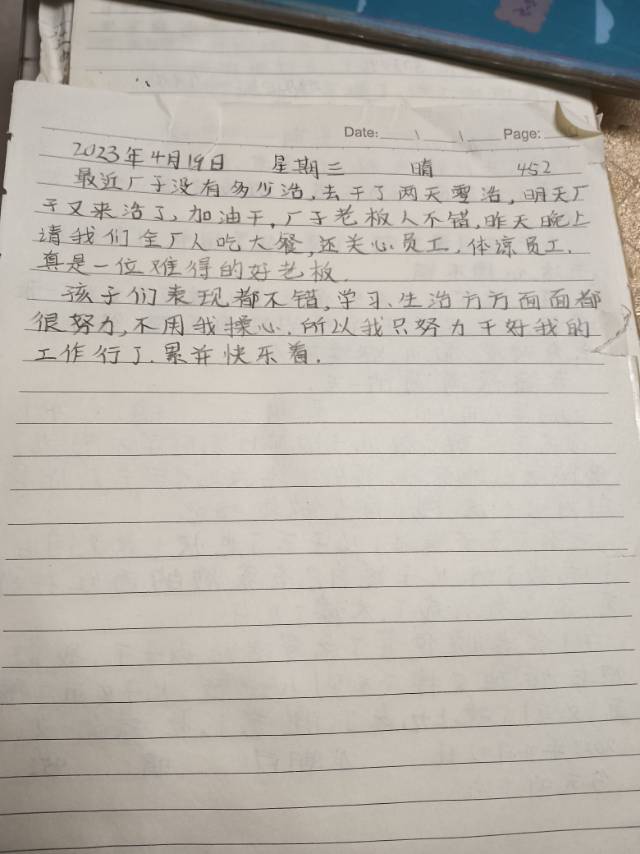 Date: Page:
2023年4月19日 星期三 晴 452
最近厂子没有多少活,去干了两天零活,明天厂
子又来活了,加油干,厂子老板人不错,昨天晚上
请我们全厂人吃大餐,还关心员工,体凉员工,
真是一位难得的好老板.
孩子们表现都不错,学习、生活方方面面都
很努力,不用我操心.所以我只努力干好我的
工作行了.累并快乐着.